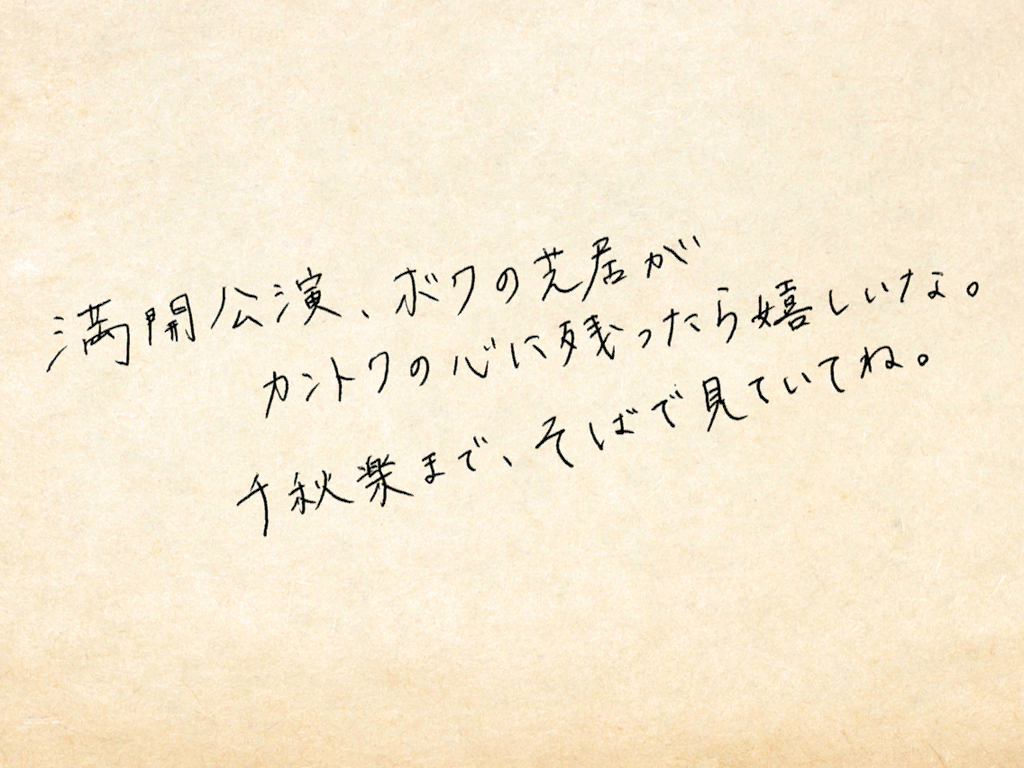 満開公演、ボクの芝居が
カントクの心に残ったら嬉しいな。
千秋楽まで、そばで見ていてね。